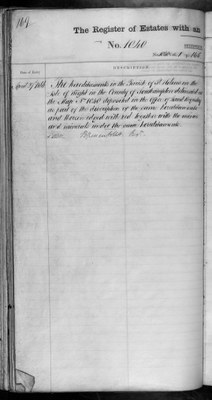 The Register of Estates with an
No. 1040
DESCRIPTION
Date of Entry
The hereditaments in the Parish of St Helens in the
Isle of Wight in the County of Southampton delineated on
the Map No 1040 deposited in the office of Land Registry
as part of the description of the same hereditaments
and thereon edged with red together with the mines
and minerals under the same hereditaments